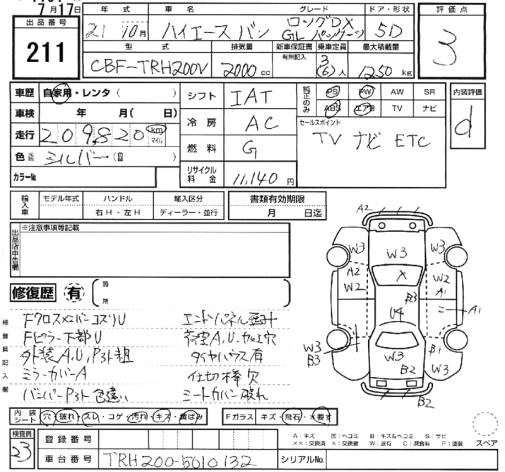 7月17日
出品番号
211
年式
21年10月
車名
ハイエースバン
グレード
ロングDX
GLパッケージ
ドア・形状
5D
評価点
3
型式
CBF-TRH200V
排気量
2000cc
新車保証書
有無記入
乗車定員
3
(6)人
最大積載量
1250kg
車歴
自家用・レンタ( )
車検
年 月( )日
走行
209820km
マイル
色
シルバー(
カラー№
シフト
IAT
冷房
AC
燃料
G
リサイクル料金
11,140円
純正のみ
PS PW AW SR
ABS エアB TV ナビ
セールスポイント
TV ナビ ETC
内装評価
d
輸入車
モデル年式
ハンドル
右H・左H
輸入区分
ディーラー・並行
書類有効期限
月 日迄
出品店申告欄
※注意事項等記載
修復歴 有
箇所
検査員記入欄
FクロスメンバーコスリU
Fピラー下部穴
外装A,U,Pヌト粗
ミラーカバーA
バンパーPヌト色違い
エンドパネル歪汁
荷室A,U,カエ穴
タイヤハウス有
仕切棒欠
シートカバー破れ
A2
W3
W3
W3
A2
W2
X
B3
A1
A1
U4
W3
B3
W3
B1
W3
W3
B2
B2
内装シート
穴・破れ・スレ・コゲ・汚れ・キズ・黄ばみ
Fガラス
キズ・飛石・X要す
スペア
検査員
23
登録番号
車台番号
TRH200-5010132
シリアル№
A:キズ U:凹ヘコミ B:キズ&ヘコミ S:サビ
XX:交換済 X:交換要 W:波有 C:腐食有 P:塗装